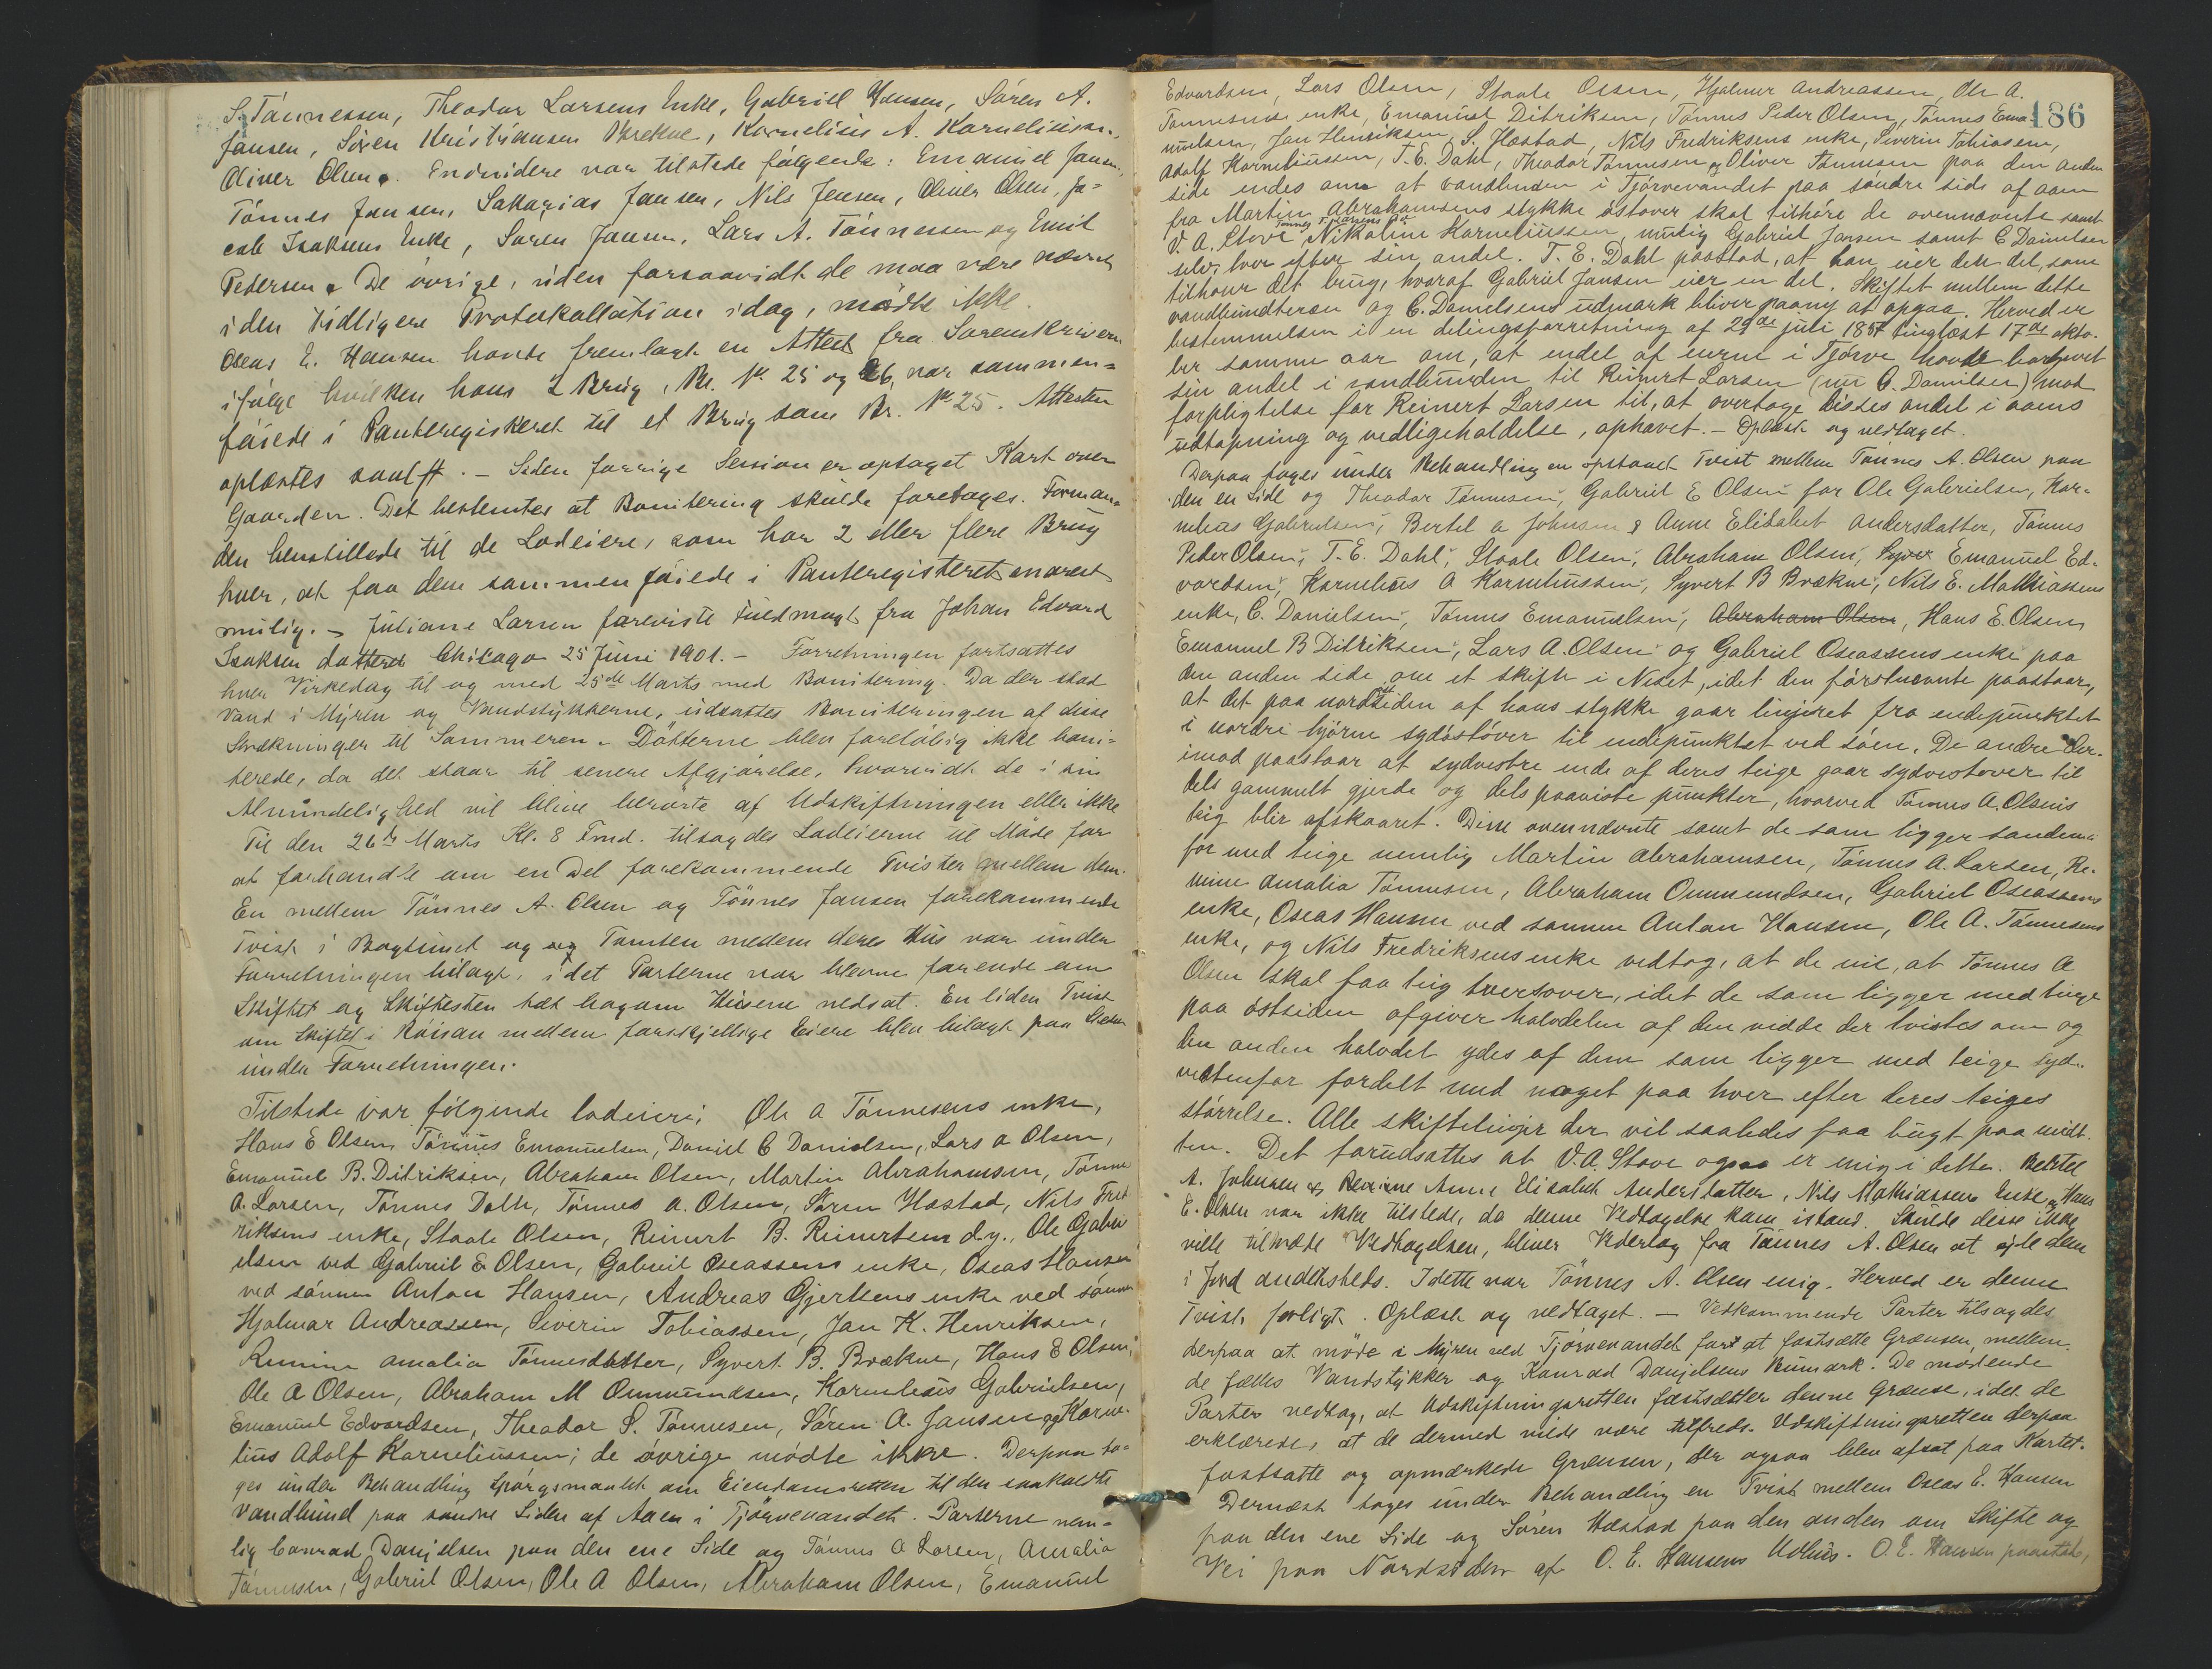 S. Tönnessen, Theodor Larsens Enke, Gabriel Hansen, Sören A.
Jansen, Sören Kristiansen Brekne, Kornelius A. Korneliussen,
Oliver Olsen. Endvidere var tilstede följende: Emanuel Jansen,
Tönnes Jansen, Sakarias Jansen, Nils Jensen, Oliver Olsen, Ja-
cob Isaksens Enke, Sören Jansen, Lars A. Tönnessen og Emil
Pedersen. De övrige, uden forsaavidt de maa være nævnt
i den tidligere Protokollation idag, mödte ikke.
Oseas E. Hansen havde fremlagt en Attest fra Sorenskriveren
ifölge hvilken hans 2 Brug, Br. No 25 og 26, var sammen-
föiede i Panteregisteret til et Brug som Br. No 25. Attesten
oplæstes saalt. – Siden forrige Session er optaget Kart over
Gaarden. Det bestemtes at Bonitering skulde foretages. Forman-
den henstillede til de Lodeiere, som har 2 eller flere Brug
hver, at faa dem sammenföiede i Panteregisteret snarest
mulig. – Juliane Larsen foreviste Fuldmagt fra Johan Edvard
Isaksen dateret Chicago 25 Juni 1901. – Forretningen fortsattes
hver Virkedag til og med 25de Marts med Bonitering. Da der stod
Vand i Myren og Vandstykkerne, udsattes Boniteringen af disse
Strækninger til Sommeren. Dötterne blev foreløbig ikke boni-
terede, da det staar til senere Afgjörelse, hvorvidt de i sin
Almindelighed vil blive berörte af Udskiftningen eller ikke
Til den 26de Marts Kl. 8 Fmd. tilsagdes Lodeierne til Möde for
at forhandle om en Del forekommende Tvister mellem dem.
En mellem Tönnes A. Olsen og Tönnes Jansen forekommende
Tvist i Bogtunet og og Tomten mellem deres Hus var under
Forretningen bilagt, idet Parterne var blevne forende om
Skiftet og Skiftesten tæt bagom Husene nedsat. En liden Tvist
om Skiftet i Röisan mellem forskjellige Eiere blev bilagt paa Stedet
under Forretningen.
Tilstede var fölgende lodeiere: Ole A Tönnesens enke,
Hans E Olsen, Tönnes Emanuelsen, Daniel C Danielsen, Lars A Olsen,
Emanuel B. Ditriksen, Abraham Olsen, Martin Abrahamsen, Tönnes
A. Larsen, Tönnes Dahl, Tönnes A. Olsen, Sören Hæstad, Nils Fred-
riksens enke, Staale Olsen, Reinert B. Reinertsen d.y., Ole Gabri-
elsen ved Gabriel E Olsen, Gabriel Oseassens enke, Oseas Hansen
ved sönnen Anton Hansen, Andreas Gjertsens enke ved sönnen
Hjalmar Andreassen, Siverin Tobiassen, Jan K. Henriksen,
Remine Amalia Tönnesdatter, Syvert B. Brækne, Hans E Olsen,
Ole A Olsen, Abraham M Ommundsen, Kornelius Gabrielsen,
Emanuel Edvardsen, Theodor S. Tönnesen, Sören A. Jansen og Korne-
lius Adolf Korneliussen; de övrige mödte ikke. Derpaa to-
ges under Behandling Spörgsmaalet om Eiendomsretten til den saakaldte
Vandbund paa söndre Siden af Aaen i Tjörvevandet. Parterne nem-
lig Conrad Danjelsen paa den ene Side og Tönnes A Larsen, Amalia
Tönnesen, Gabriel Olsen, Ole A Olsen, Abraham Olsen, Emanuel
186
Edvardsen, Lars Olsen, Staale Olsen, Hjalmer Andreassen, Ole A.
Tönnesens enke, Emanuel Ditriksen, Tönnes Peder Olsen, Tönnes Ema-
nuelsen, Jan Henriksen, S. Hæstad, Nils Fredriksens enke, Siverin Tobiasen,
Adolf Korneliussen, T. E. Dahl, Theodor Tönnesen og Oliver Tönnesen paa den anden
side endes om at vandbunden i Tjörvevandet paa söndre side af aaen
fra Martin Abrahamsens stykke östover skal tilhöre de ovennævnte samt
V. A. Stove Tönnes Nikoline Korneliussen, mulig Gabriel Jansen samt C Danielsen
selv, hver efter sin andel. T. E. Dahl paastod, at han eier den del, som
tilhører det brug, hvoraf Gabriel Jansen eier en del. Skiftet mellem dette
vandbundteræn og C. Danielsens udmark bliver paany at opgaa. Herved er
bestemmelsen i en delingsforretning af 29de juli 1857 tinglæst 17de okto-
ber samme aar om, at endel af eierne i Tjörve havde bortgivet
sin andel i vandbunden til Reinert Larsen (nu C. Danielsen) mod
forpligtelse for Reinert Larsen til, at overtage disses andel i aaens
udtapning og vedligeholdelse, ophævet. – Oplæst og vedtaget.
Derpaa toges under Behandling en opstaaet Tvist mellem Tönnes A. Olsen paa
den en side og Theodor Tönnesen, Gabriel E Olsen for Ole Gabrielsen, Kor-
nelius Gabrielsen, Bertel A Johnsen & Anne Elisabet Andersdatter, Tönnes
Peder Olsen, T. E. Dahl, Staale Olsen, Abraham Olsen, Emanuel Ed-
vardsen, Kornelius A Korneliussen, Syvert B Brækne, Nils E. Mathiassens
enke, C. Danielsen, Tönnes Emanuelsen, Abraham Olsen, Hans E. Olsen,
Emanuel B Ditriksen, Lars A. Olsen og Gabriel Oseassens enke paa
den anden side om et skifte i Neset, idet den förstnævnte paastaar,
at det paa nordsiden af hans stykke gaar linjeret fra endepunktet
i nordre hjörne sydöstover til endepunktet ved söen. De andre der-
imod paastaar at sydvestre ende af deres teige gaar sydvestover til
dels gammelt gjerde og dels paaviste punkter, hvorved Tönnes A. Olsens
teig blir afskaaret. Disse ovennævnte samt de som ligger sønden-
for med teige nemlig Martin Abrahamsen, Tönnes A. Larsen, Re-
mine Amalia Tönnesen, Abraham Ommundsen, Gabriel Oseassens
enke, Oseas Hansen ved sønnen Anton Hansen, Ole A. Tönnesens
enke, og Nils Fredriksens enke vedtog, at de vil, at Tönnes A
Olsen skal faa teig tversover, idet de som ligger med teige
paa östsiden afgiver halvdelen af den vidde der tvistes om og
den anden halvdel ydes af dem som ligger med teige syd-
vestenfor fordelt med noget paa hver efter deres teiges
störrelse. Alle skiftelinjer der vil saaledes faa bugt paa midt-
ten. Det forudsattes at V.A. Stove ogsaa er enig i dette. Bertel
A. Johnsen og Anne Elisabeth Andersdatter, Nils Mathiassens Enke og Hans
E. Olsen var ikke tilstede, da denne Vedtagelse kom istand. Skulde disse ikke
ville tiltræde Vedtagelsen, bliver Vederlag fra Tönnes A. Olsen at yde dem
i Jord andetsteds. I dette var Tönnes A. Olsen enig. Herved er denne
Tvist forligt. Oplæst og vedtaget. – Vedkommende Parter tilsagdes
derpaa at möde i Myren ved Tjörvevandet for at fastsætte Grænsen mellem
de fælles Vandstykker og Konrad Danjelsens Heimark. De mödende
Parter vedtog, at Udskiftningsretten fastsætter denne Grænse, idet de
erklærede, at de dermed vilde være tilfreds. Udskiftningsretten derpaa
fastsatte og opmærkede Grænsen, der ogsaa blev afsat paa Kartet.
Dernæst toges under Behandling en Tvist mellem Oseas E. Hansen
paa den ene Side og Sören Hæstad paa den anden om Skifte og
Vei paa Nordsiden af O. E. Hansens Udhus. O. E. Hansen paastod,